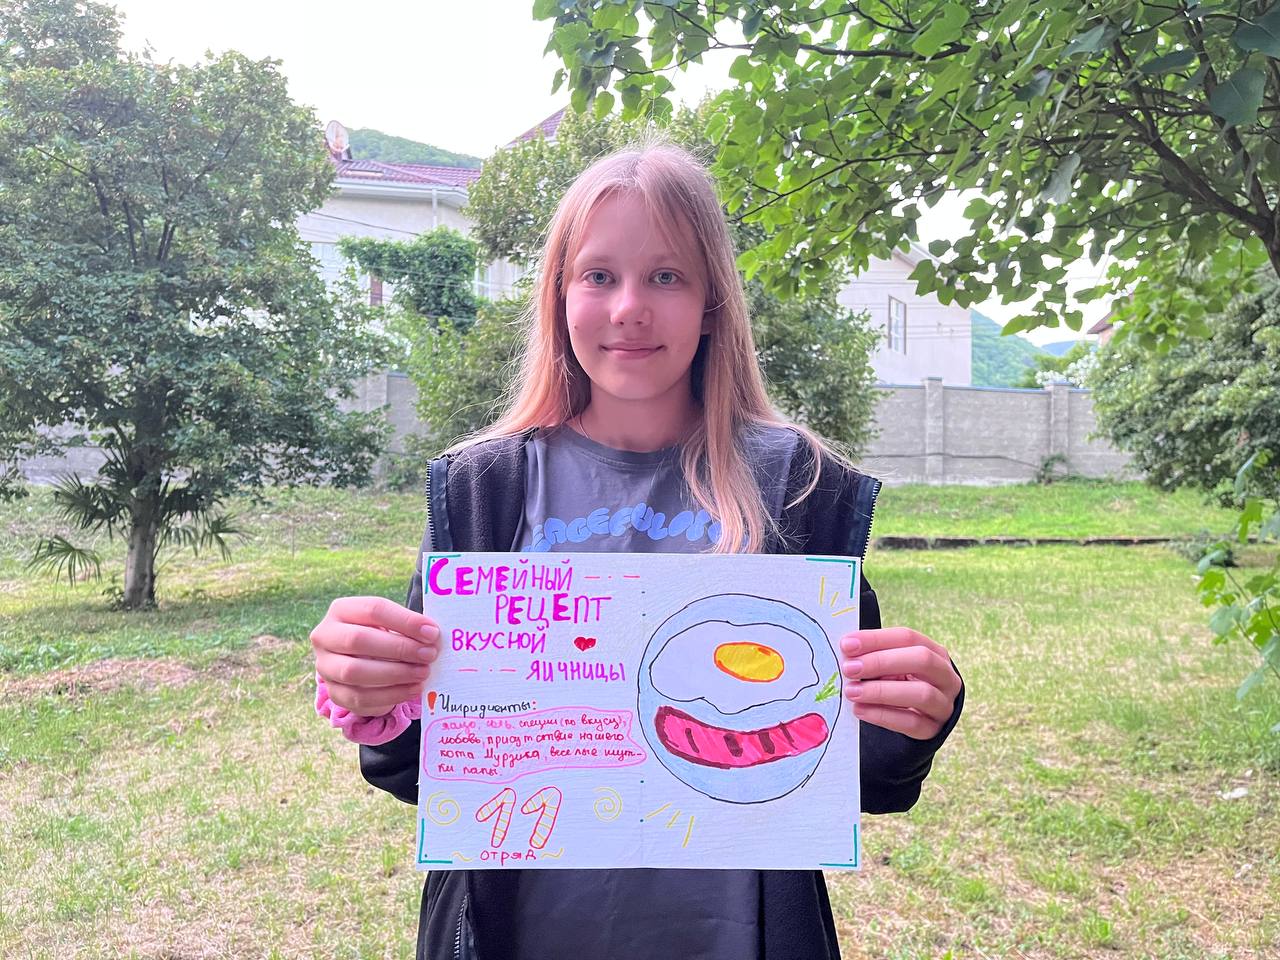 СЕМЕЙНЫЙ
РЕЦЕПТ
ВКУСНОЙ
ЯИЧНИЦЫ
! Ингридиенты:
яйцо, соль, специи (по вкусу),
любовь, присутствие нашего
кота Мурзика, веселые шут-
ки папы.
11
отряд